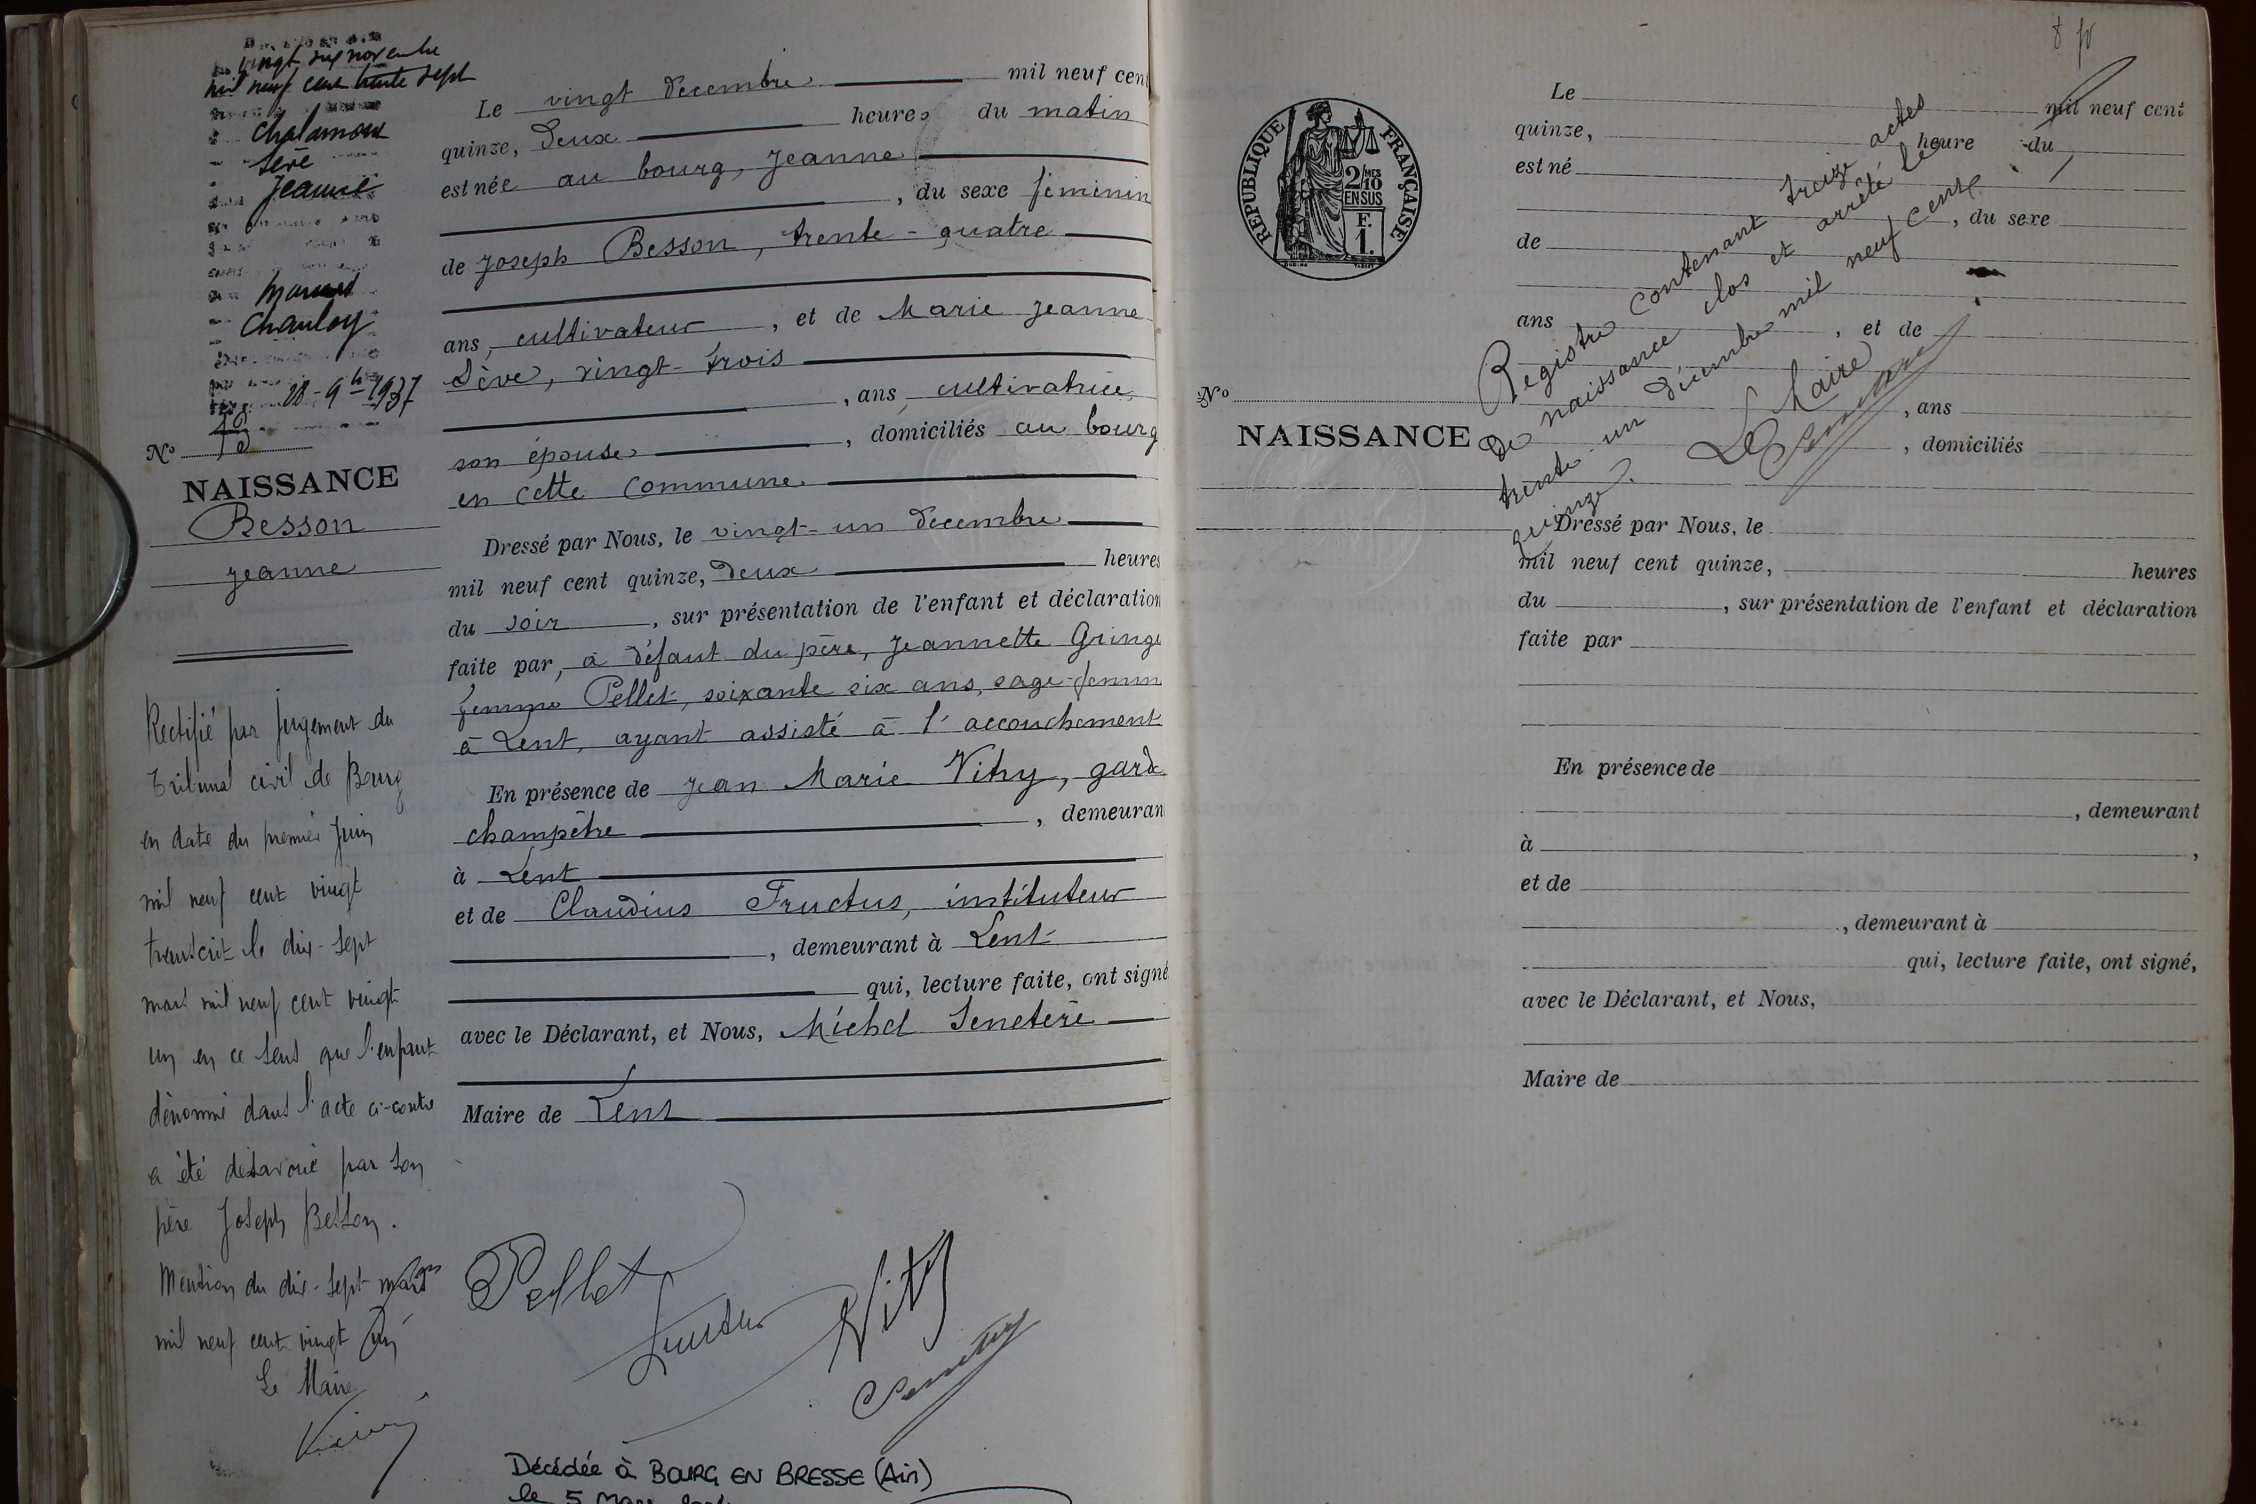 vingt six novembre
mil neuf cent trente sept
Chalamont
Sève
Jeanne
Marius
Chanloy
28 - 9bre 1937
No 13
NAISSANCE
Besson
Jeanne
Rectifié par jugement du
Tribunal civil de Bourg
en date du premier Juin
mil neuf cent vingt
transcrit le dix-sept
mars mil neuf cent vingt
un en ce sens que l'enfant
dénommé dans l'acte ci-contre
a été désavoué par son
père Joseph Besson.
Mention du dix-sept mars
mil neuf cent vingt un
Le Maire
Le vingt decembre mil neuf cent
quinze, deux heures du matin
est née au bourg, Jeanne
, du sexe féminin
de Joseph Besson, trente-quatre
ans, cultivateur, et de Marie Jeanne
Sève, vingt-trois
, ans, cultivatrice,
son épouse, domiciliés au bourg
en cette commune.
Dressé par Nous, le vingt-un decembre
mil neuf cent quinze, deux heures
du soir, sur présentation de l'enfant et déclaration
faite par, à défaut du père, Jeannette Gringe
femme Pellet, soixante six ans, sage-femm
à Lent, ayant assisté à l'accouchement
En présence de Jean Marie Vitry, garde
champêtre, demeuran
à Lent
et de Claudius Fructus, instituteur
, demeurant à Lent
qui, lecture faite, ont signé
avec le Déclarant, et Nous, Michel Senetère
Maire de Lent
Pellet
Fructus
Vitry
Décédée à BOURG EN BRESSE (Ain)
le 5 Mars
RÉPUBLIQUE FRANÇAISE
2/10
MES
EN SUS
F.
1.
No
NAISSANCE
Le mil neuf cent
quinze, heure du
est né
, du sexe
de
ans, et de
, ans
, domiciliés
Registre contenant treize actes
de naissance clos et arrêté le
trente-un décembre mil neuf cent
quinze.
Le Maire
Dressé par Nous, le
mil neuf cent quinze, heures
du, sur présentation de l'enfant et déclaration
faite par
En présence de
, demeurant
à,
et de
, demeurant à
qui, lecture faite, ont signé,
avec le Déclarant, et Nous,
Maire de